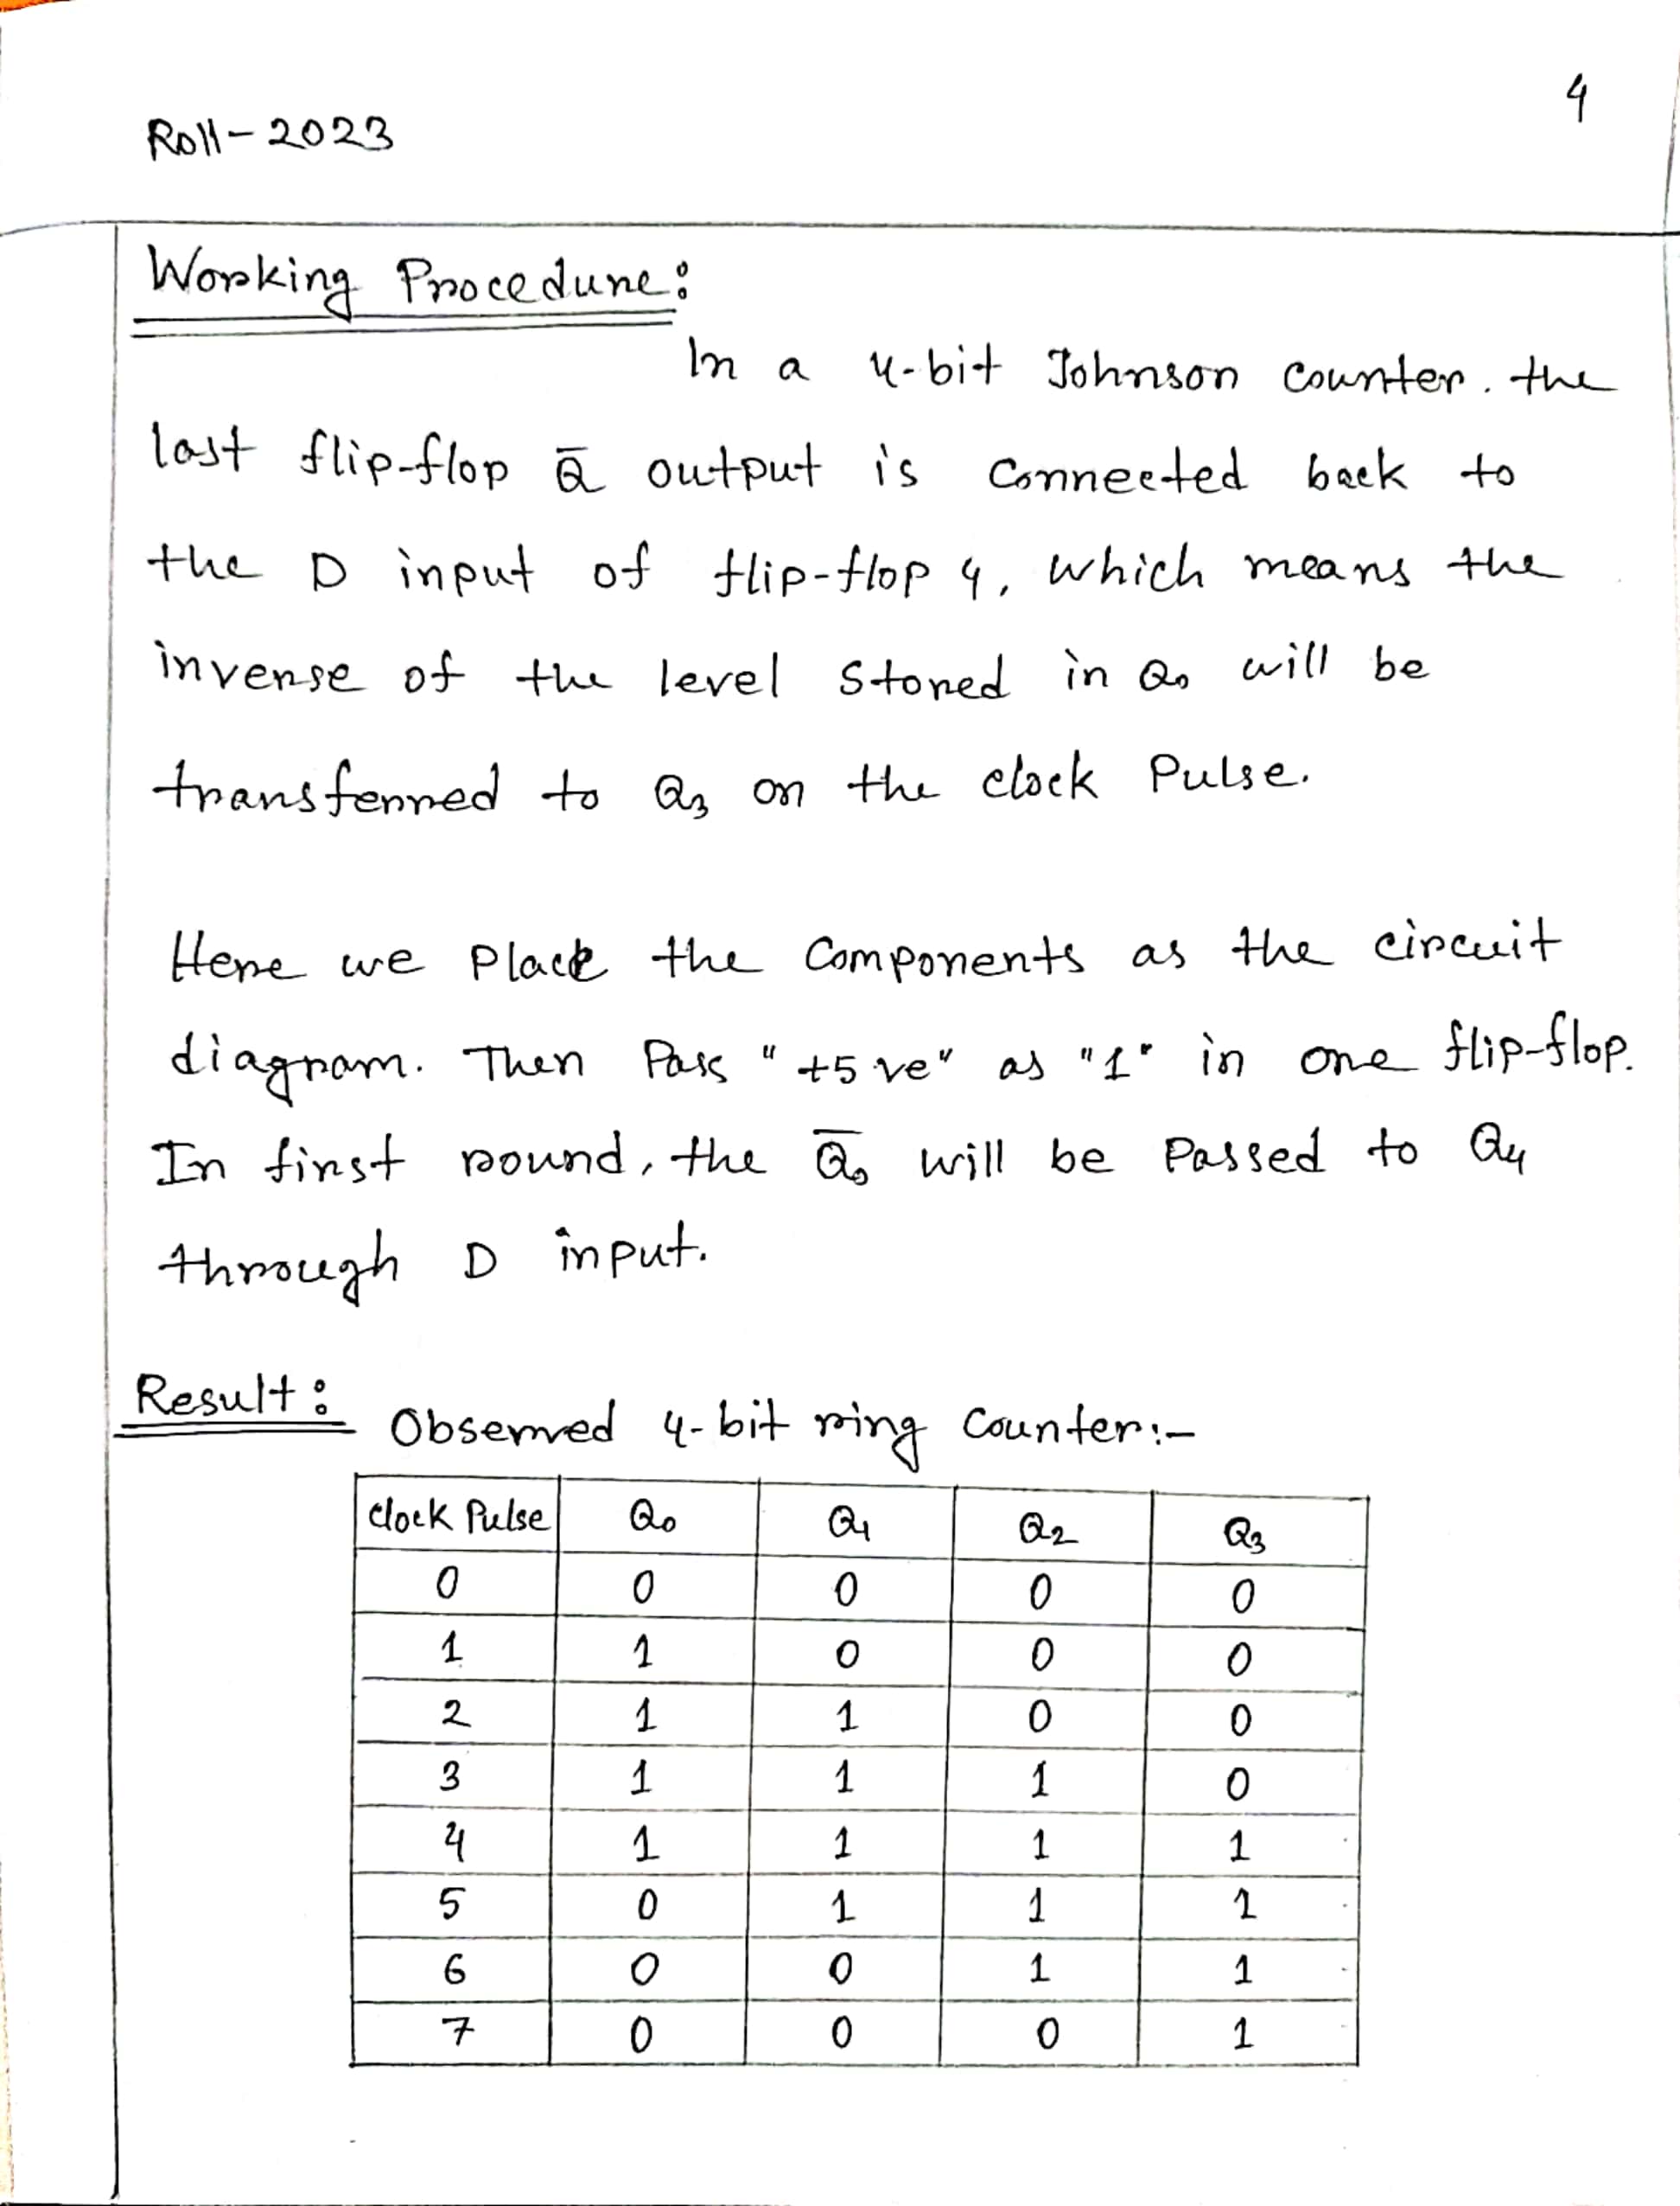 4
Roll-2023
Working Procedure:
In a 4-bit Johnson counter. the
last flip-flop Q̄ output is connected back to
the D input of flip-flop 4, which means the
inverse of the level stored in Q₀ will be
transferred to Q₃ on the clock Pulse.
Here we place the components as the circuit
diagram. Then Pass "+5 ve" as "1" in one flip-flop.
In first round, the Q̄₀ will be Passed to Q₄
through D input.
Result: Observed 4-bit ring counter:-
Clock Pulse Q₀ Q₁ Q₂ Q₃
0 0 0 0 0
1 1 0 0 0
2 1 1 0 0
3 1 1 1 0
4 1 1 1 1
5 0 1 1 1
6 0 0 1 1
7 0 0 0 1